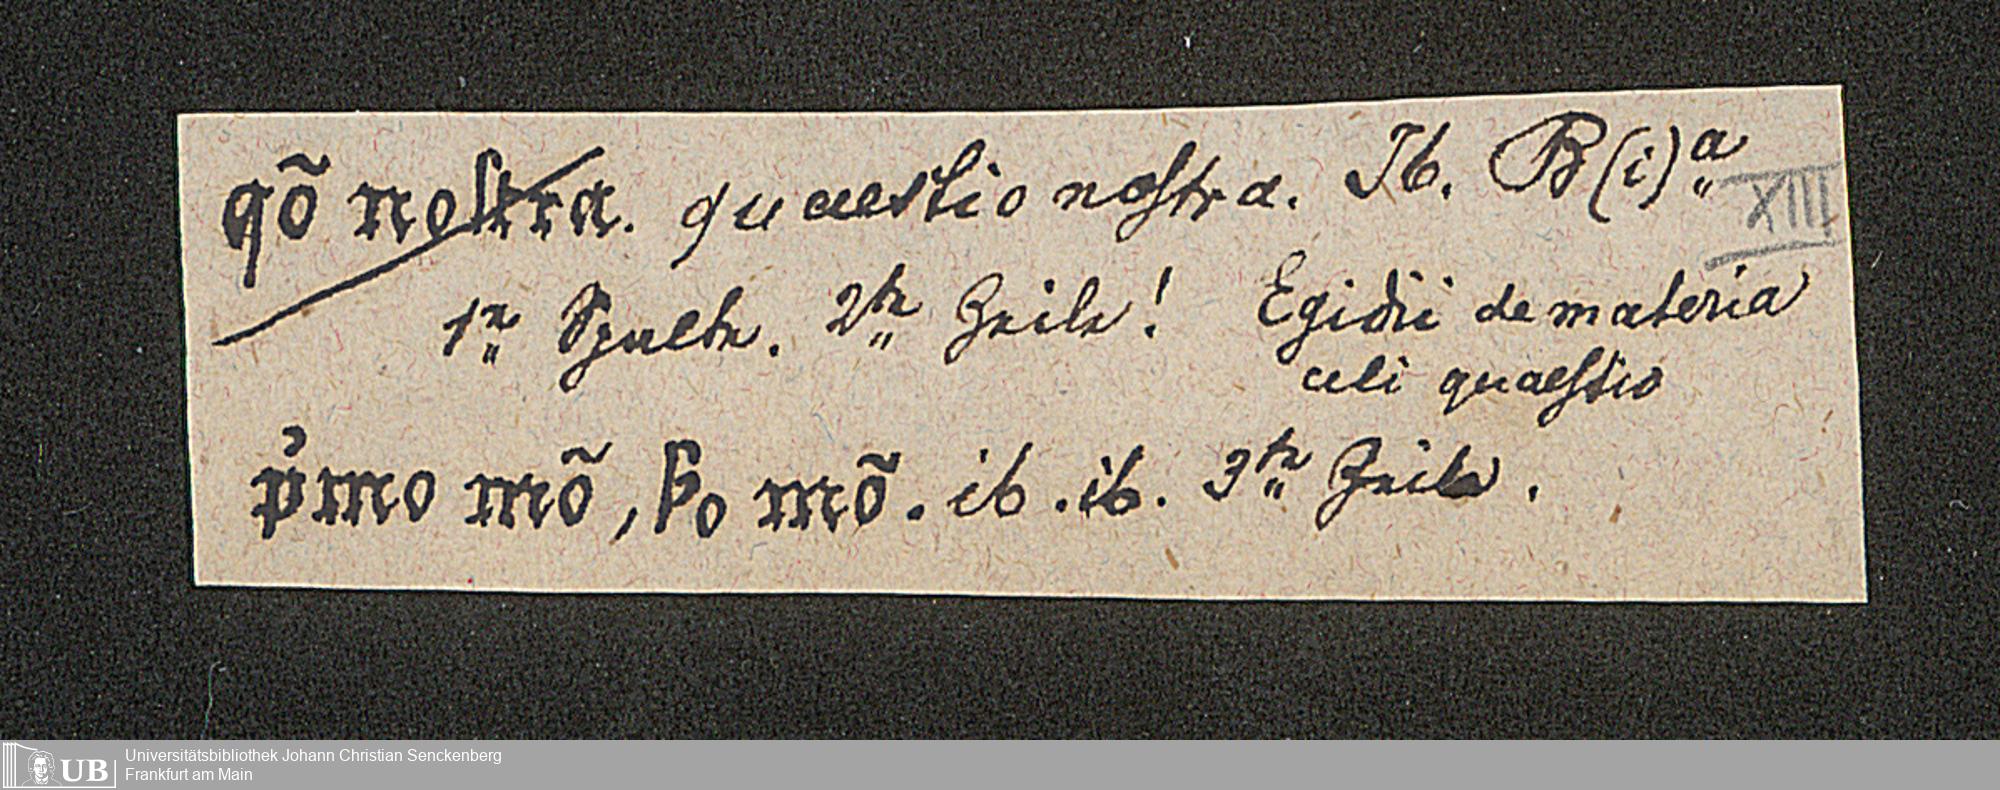 qõ nostra. quaestio nostra. Ib. B(i)a
XIII
1te Spalte. 2te Zeile! Egidii de materia
celi quaestio
pͥmo mõ, so mõ. ib. ib. 3te Zeile.
UB Universitätsbibliothek Johann Christian Senckenberg
Frankfurt am Main